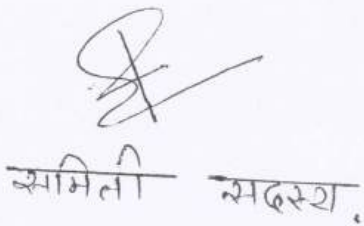 समिती सदस्य.